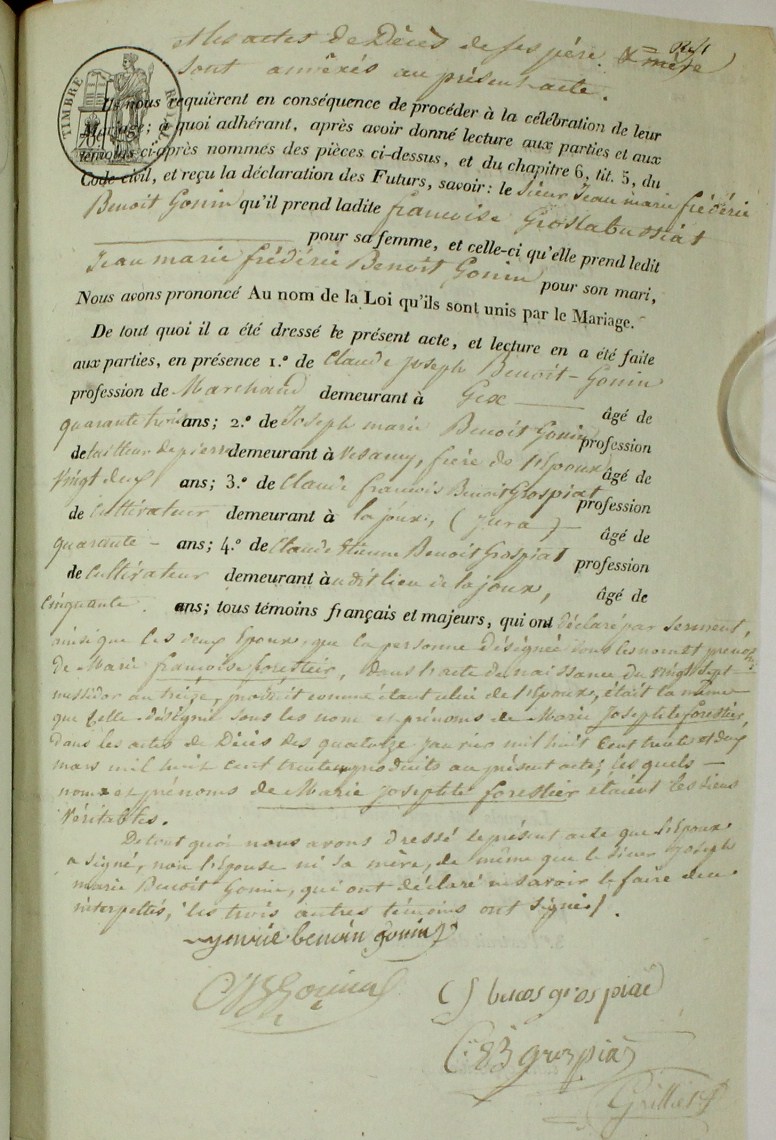 et les actes de Décès de ses père & mère
sont annéxés au présent acte.
TIMBRE ROYAL
Ils nous requièrent en conséquence de procéder à la célébration de leur
Mariage; à quoi adhérant, après avoir donné lecture aux parties et aux
témoins ci-après nommés des pièces ci-dessus, et du chapitre 6, tit. 5, du
Code civil, et reçu la déclaration des Futurs, savoir: le Sieur Jean marie frédéric
Benoit Gonin qu'il prend ladite francoise Groslabussiat
pour sa femme, et celle-ci qu'elle prend ledit
Jean marie frédéric Benoit Gonin pour son mari,
Nous avons prononcé Au nom de la Loi qu'ils sont unis par le Mariage.
De tout quoi il a été dressé le présent acte, et lecture en a été faite
aux parties, en présence 1.° de Claude Joseph Benoit-Gonin
profession de Marchand demeurant à Gex âgé de
quarante trois ans; 2.° de Joseph marie Benoit Gonin profession
de tailleur de pierre demeurant à Vesancy, frère de l'Epoux âgé de
Vingt deux ans; 3.° de Claude francois Benoit Grospiat profession
de Cultivateur demeurant à lajoux, (Jura) âgé de
quarante - ans; 4.° de Claude Etienne Benoit Grospiat profession
de Cultivateur demeurant à udit lieu de lajoux, âgé de
Cinquante. ans; tous témoins français et majeurs, qui ont déclaré par Serment,
ainsi que les deux Epoux, que la personne désignée sous les nom et prénoms
de Marie françoise forestier, dans l'acte de naissance du Vingt Sept
messidor an treize, produit comme étant celui de l'Epoux, était la même
que Celle désigné sous les nom et prénoms de Marie Josephte forestier,
dans les actes de Décès des quatorze janvier mil huit Cent trente et deux
mars mil huit cent trente produits au présent acte; les quels -
noms et prénoms de Marie Josephte forestier étaient les Siens
Véritables.
De tout quoi nous avons dressé le présent acte que l'Epoux
a signé, non l'Epouse ni sa mère, de même que le Sieur Joseph
marie Benoit Gonin, qui ont déclaré ne savoir le faire de ce
interpellés, les trois autres témoins ont signé.
benoin gonin
Gonin
benoi gros piat
grospiat
Grilliet